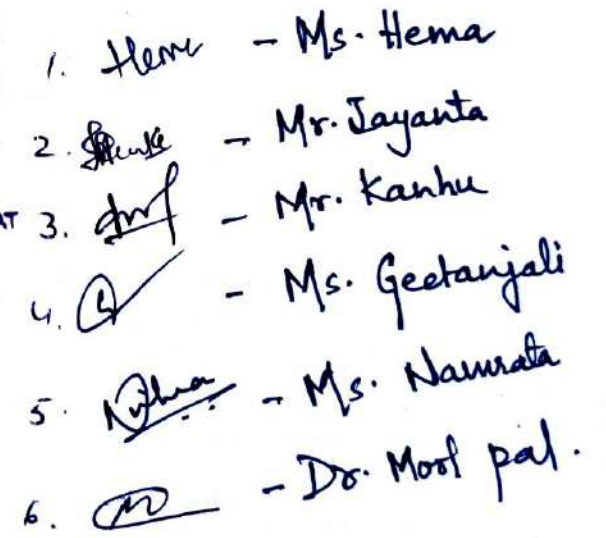 1. Hema - Ms. Hema
2. - Mr. Jayanta
AT 3. - Mr. Kanhu
4. - Ms. Geetanjali
5. - Ms. Namrata
6. - Dr. Mool pal.